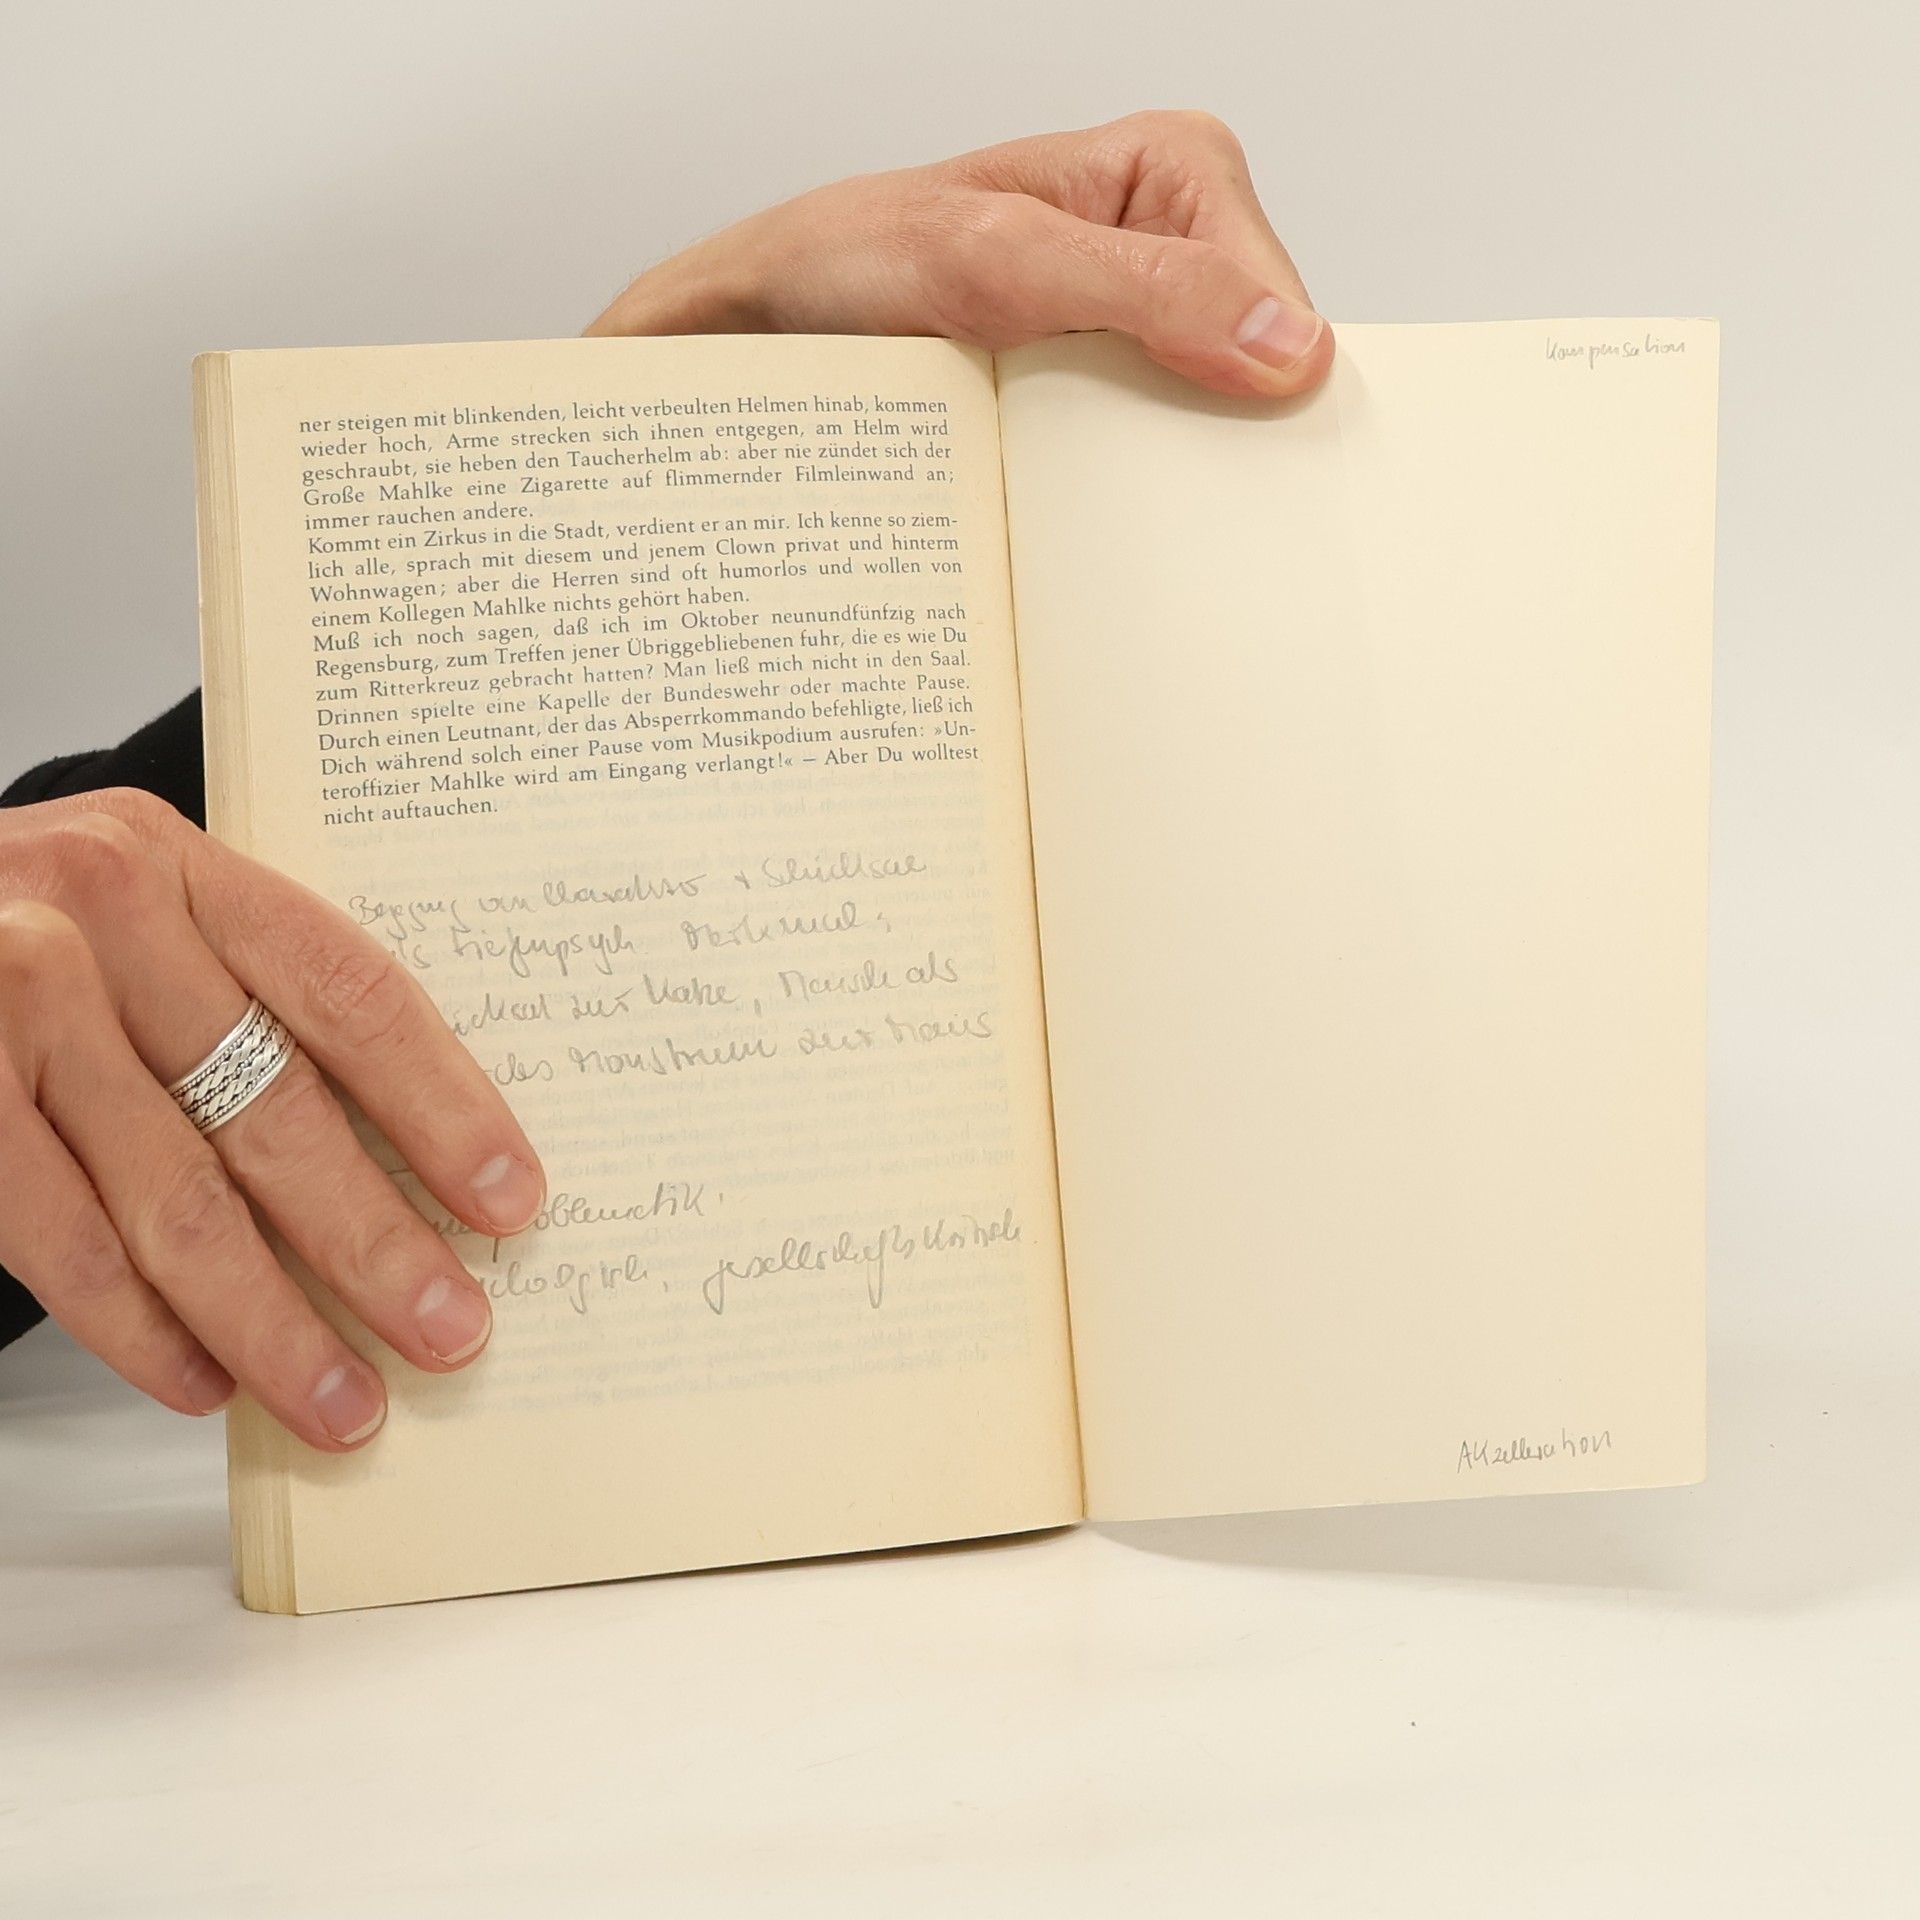 ner steigen mit blinkenden, leicht verbeulten Helmen hinab, kommen
wieder hoch, Arme strecken sich ihnen entgegen, am Helm wird
geschraubt, sie heben den Taucherhelm ab: aber nie zündet sich der
Große Mahlke eine Zigarette auf flimmernder Filmleinwand an;
immer rauchen andere.
Kommt ein Zirkus in die Stadt, verdient er an mir. Ich kenne so ziem-
lich alle, sprach mit diesem und jenem Clown privat und hinterm
Wohnwagen; aber die Herren sind oft humorlos und wollen von
einem Kollegen Mahlke nichts gehört haben.
Muß ich noch sagen, daß ich im Oktober neunundfünfzig nach
Regensburg, zum Treffen jener Übriggebliebenen fuhr, die es wie Du
zum Ritterkreuz gebracht hatten? Man ließ mich nicht in den Saal.
Drinnen spielte eine Kapelle der Bundeswehr oder machte Pause.
Durch einen Leutnant, der das Absperrkommando befehligte, ließ ich
Dich während solch einer Pause vom Musikpodium ausrufen: »Un-
teroffizier Mahlke wird am Eingang verlangt!« – Aber Du wolltest
nicht auftauchen.
von + Schicksal
als tiefenpsych. Merkmal;
zur Katze, als
des Monstrum zur Maus
oblematik.
Kompensation
Akzelleration